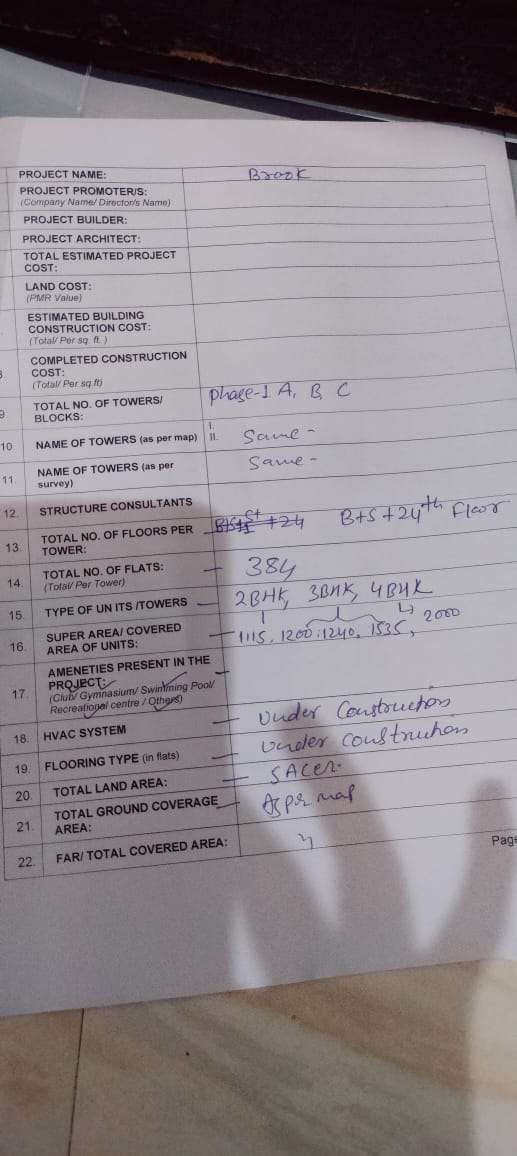 PROJECT NAME: Brook
PROJECT PROMOTER/S:
(Company Name/ Director/s Name)
PROJECT BUILDER:
PROJECT ARCHITECT:
TOTAL ESTIMATED PROJECT
COST:
LAND COST:
(PMR Value)
ESTIMATED BUILDING
CONSTRUCTION COST:
(Total/ Per sq. ft.)
COMPLETED CONSTRUCTION
COST:
(Total/ Per sq.ft)
9. TOTAL NO. OF TOWERS/ Phase-1 A, B, C
BLOCKS:
I.
10. NAME OF TOWERS (as per map) II. Same -
11. NAME OF TOWERS (as per Same -
survey)
12. STRUCTURE CONSULTANTS
13. TOTAL NO. OF FLOORS PER +24 B+S+24th Floor
TOWER:
14. TOTAL NO. OF FLATS: 384
(Total/ Per Tower)
15. TYPE OF UN ITS /TOWERS 2BHK, 3BHK, 4BHK
16. SUPER AREA/ COVERED 1115, 1200, 1240, 1535, 2000
AREA OF UNITS:
17. AMENETIES PRESENT IN THE
PROJECT:
(Club/ Gymnasium/ Swimming Pool/
Recreational centre / Others)
18. HVAC SYSTEM Under Construction
19. FLOORING TYPE (in flats) Under construction
20. TOTAL LAND AREA:
21. TOTAL GROUND COVERAGE As per map
AREA:
22. FAR/ TOTAL COVERED AREA:
Page